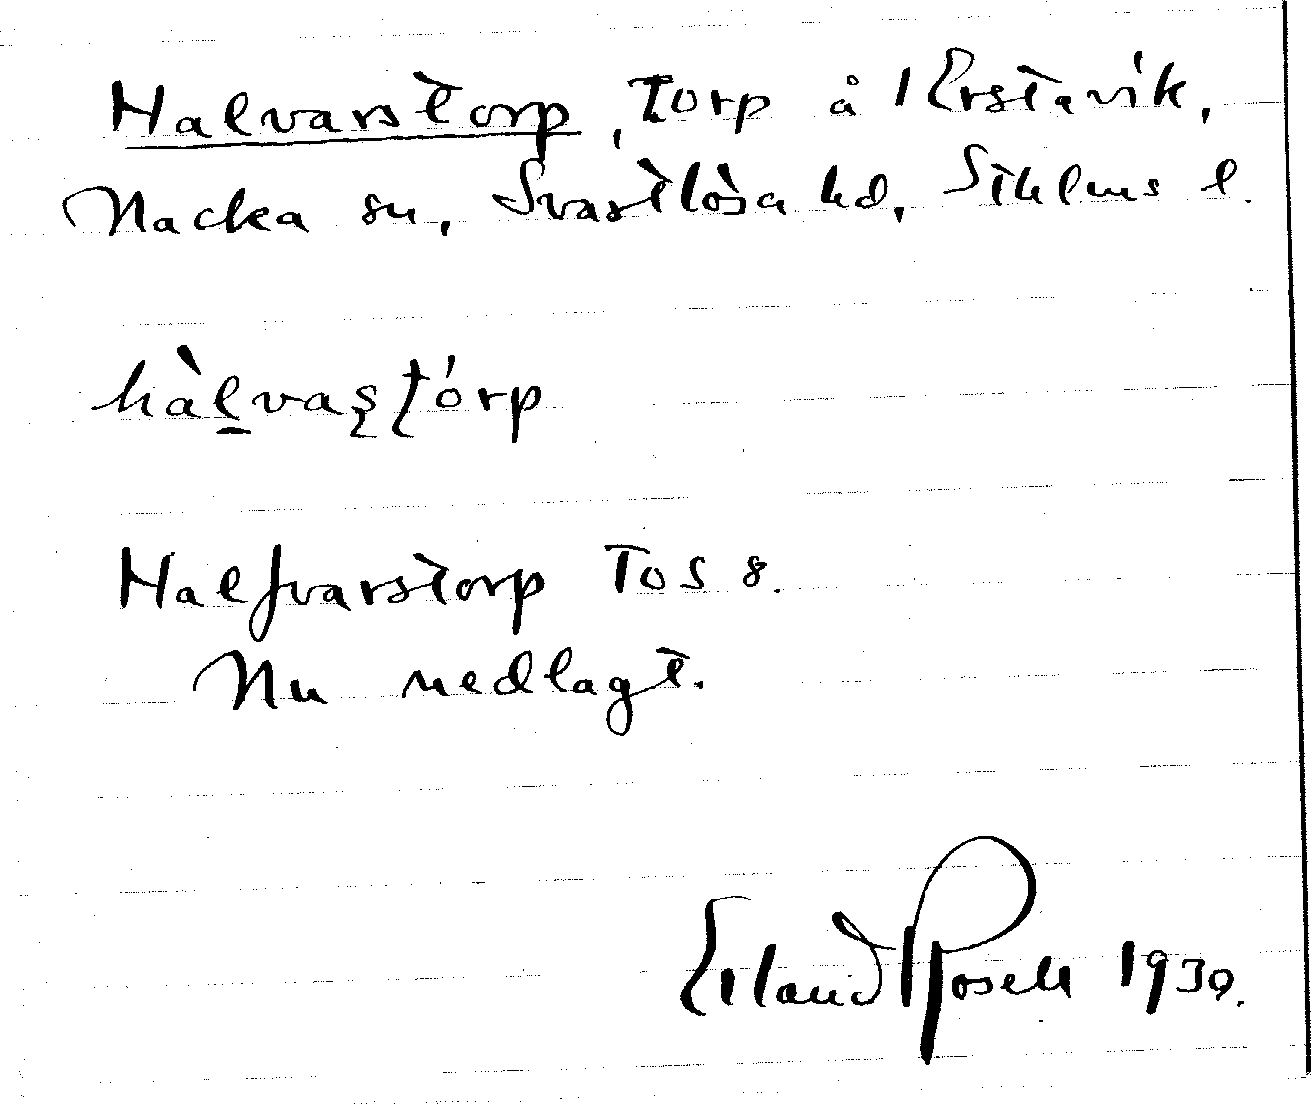 Halvarstorp, torp å Erstavik,
Nacka sn, Svartlösa hd, Sthlms l.
hàl̠vaʂʈórp
Halfvarstorp TOS 8.
Nu nedlagt.
Erland Rosell 1930.